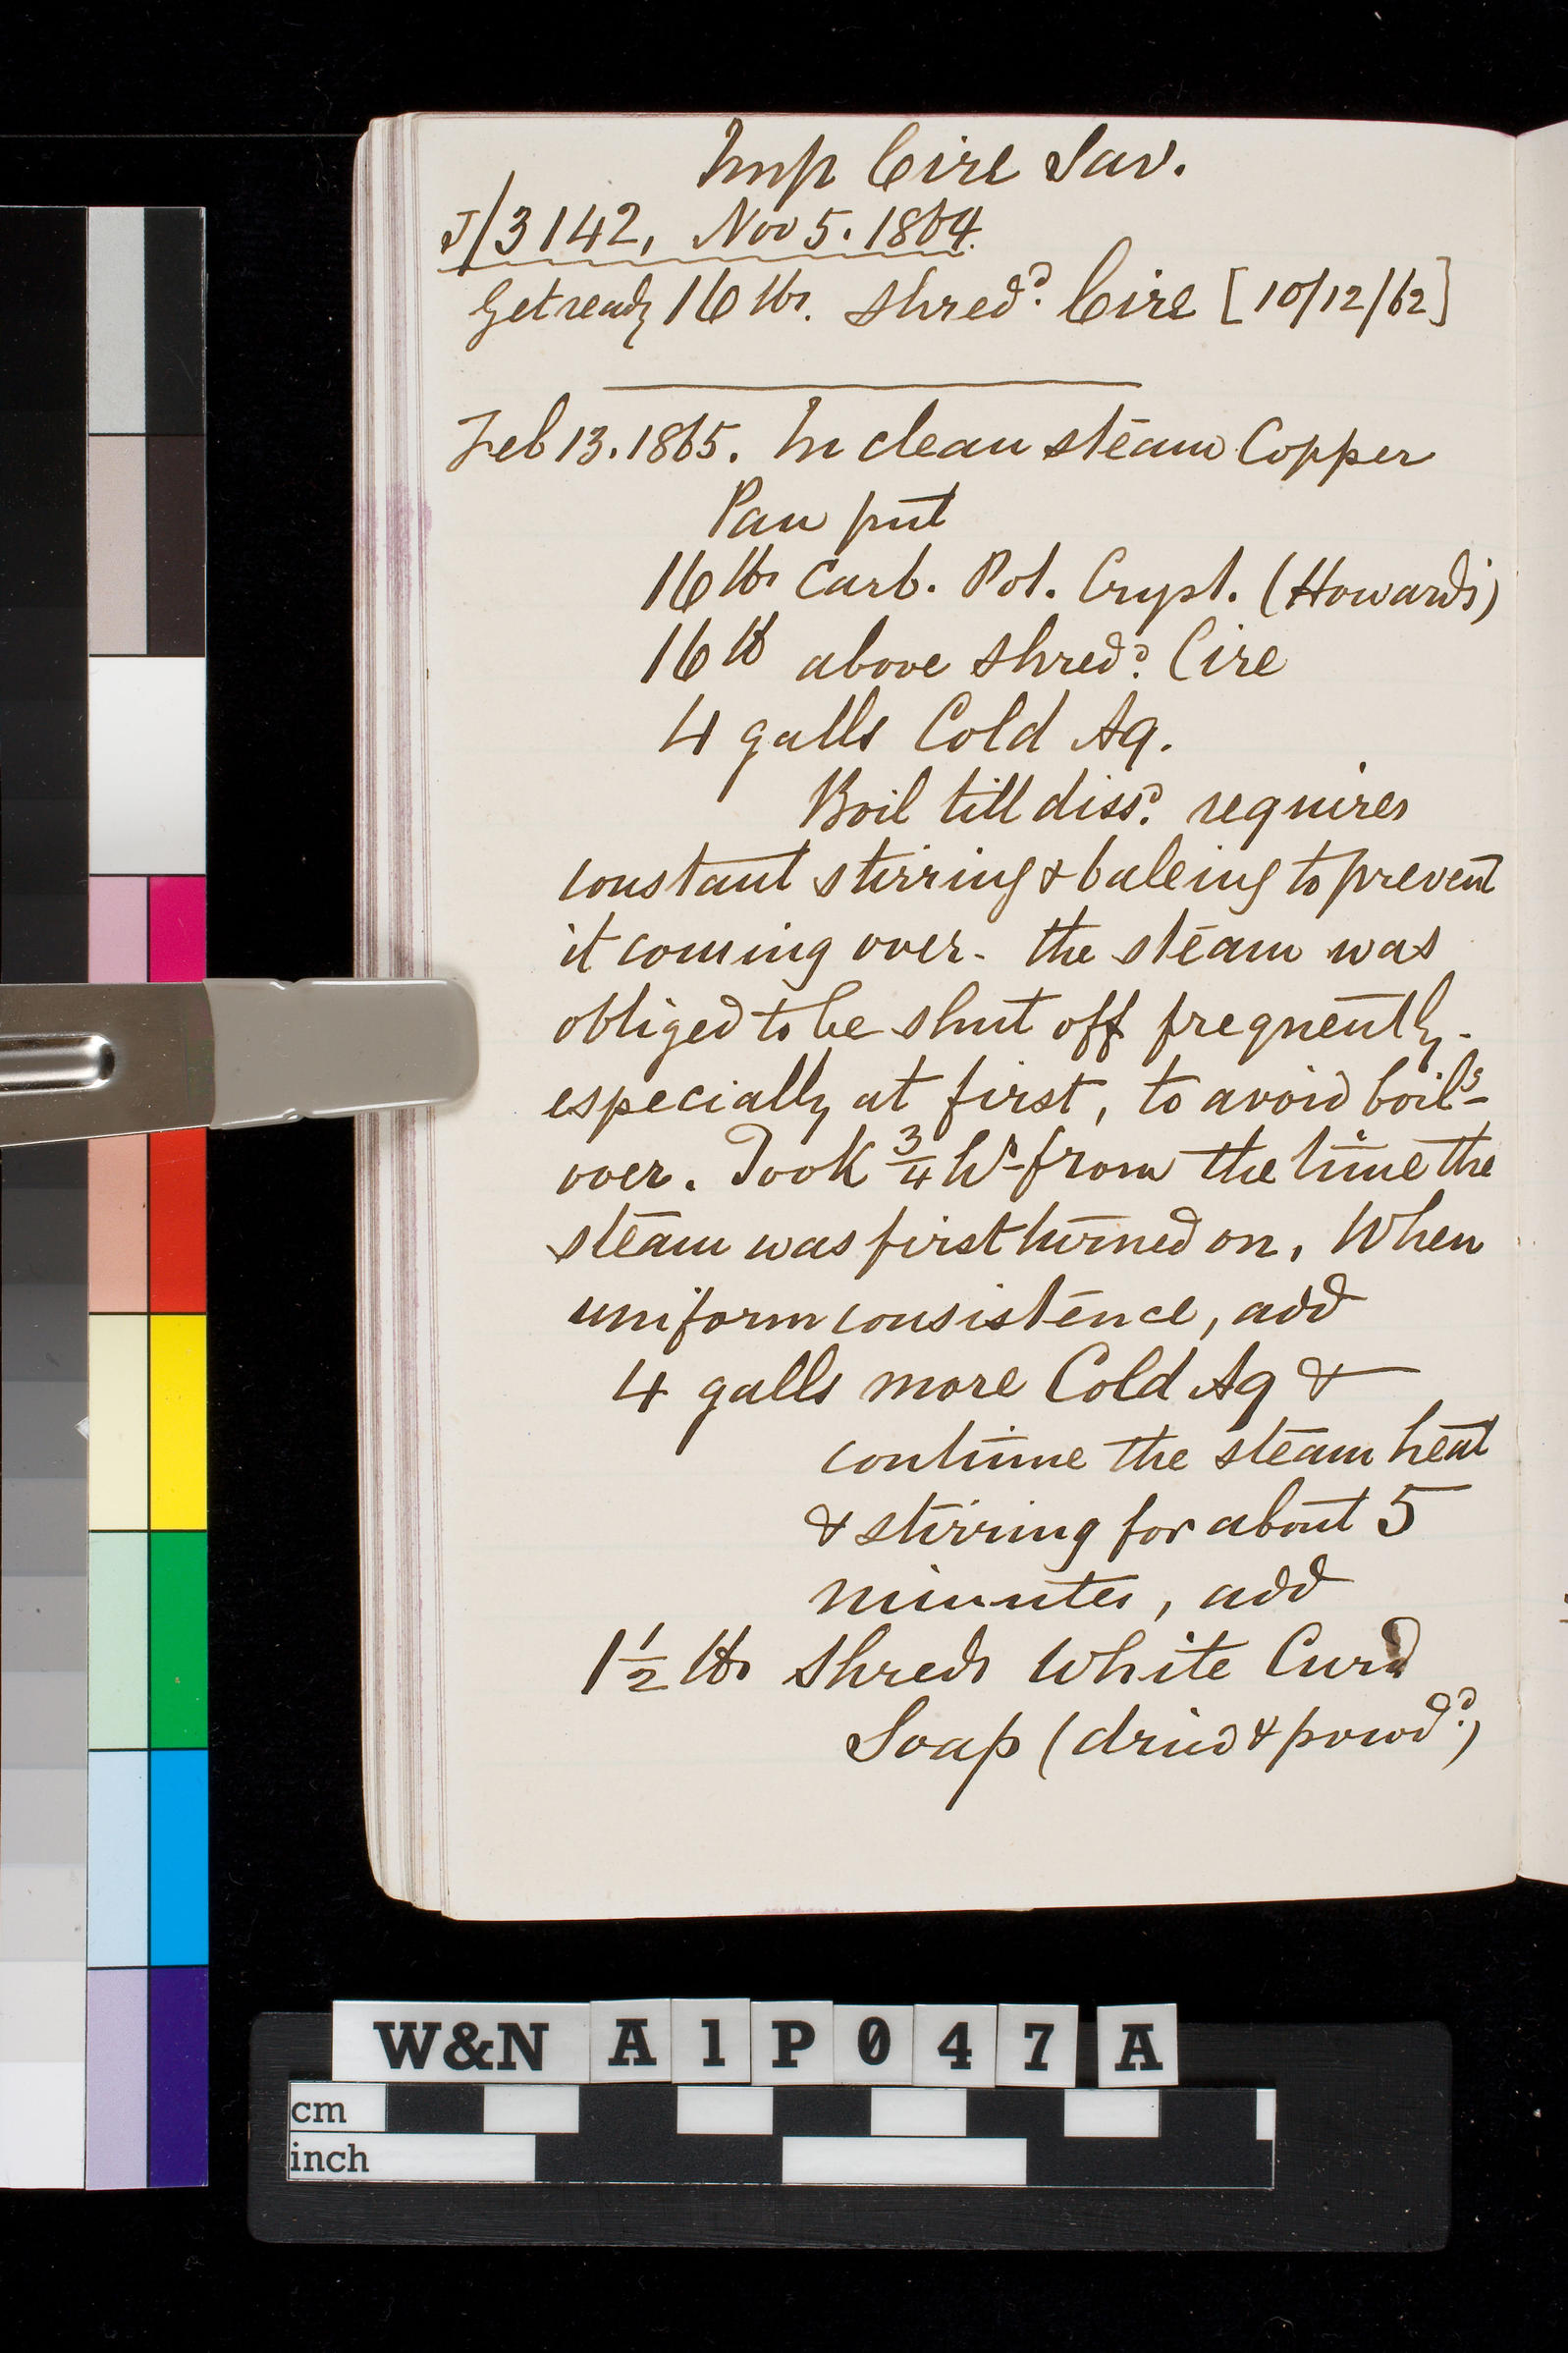 Imp Cire Sav.
J/3142, Nov 5. 1864.
Get ready 16 lbs. shredd. Cire [10/12/62]
Feb 13. 1865. In clean steam Copper
Pan put
16 lbs Carb. Pot. Cryst. (Howards)
16 lb above shredd. Cire
4 galls Cold Aq.
Boil till dissd. requires
constant stirring & baleing to prevent
it coming over. the steam was
obliged to be shut off frequently.
especially at first, to avoid boilg
over. Took 3/4 hr from the time the
steam was first turned on. When
uniform consistence, add
4 galls more Cold Aq &
continue the steam heat
& stirring for about 5
minutes, add
1 1/2 lbs shreds White Curd
Soap (dried & powdd.)
W&N A1P047A
cm
inch